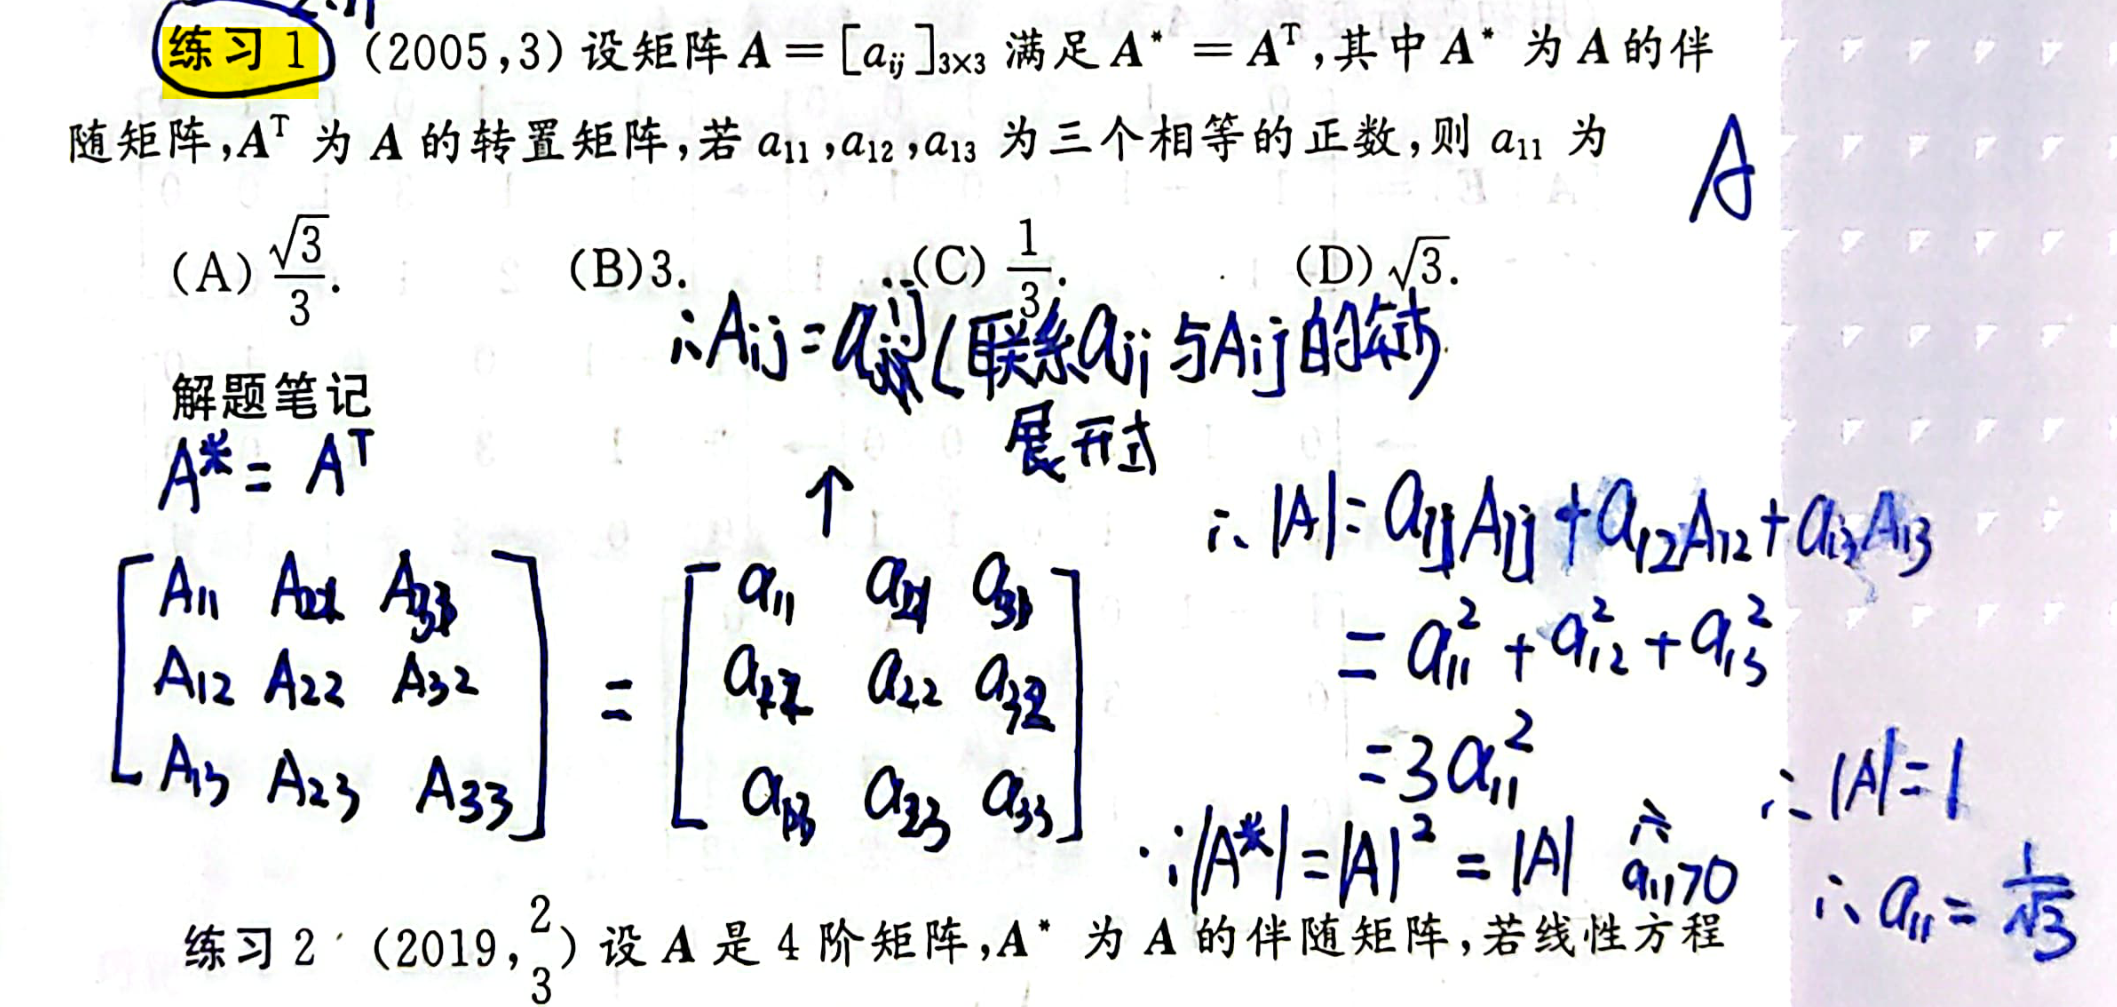 练习 1 (2005,3) 设矩阵 A = [aij]3×3 满足 A* = Aᵀ,其中 A* 为 A 的伴
随矩阵,Aᵀ 为 A 的转置矩阵,若 a11,a12,a13 为三个相等的正数,则 a11 为
A
(A) √3/3. (B)3. (C) 1/3. (D) √3.
∴Aij=aij(联系aij与Aij的
展开式
解题笔记
A*= Aᵀ
↑
A11 A21
A12 A22 A32
A13 A23 A33
=
a11 a21 a31
a22 a32
a13 a23 a33
∴ |A|= a11A11+a12A12+a13A13
= a11²+a12²+a13²
=3a11²
∵|A*|=|A|²=|A| a11>0
∴|A|=1
∴ a11= 1/√3
练习 2 (2019,2/3) 设 A 是 4 阶矩阵,A* 为 A 的伴随矩阵,若线性方程